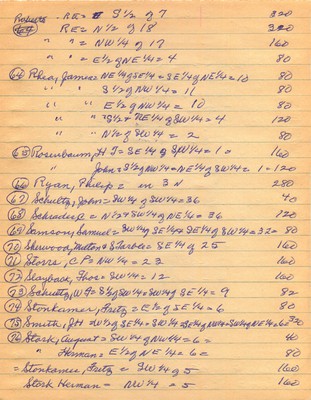 Roberts - RE = S 1/2 of 7 320
RE = N 1/2 of 18 320
" " = NW 1/4 of 17 160
" " = E 1/2 of NE 1/4 = 4 80
64 Rhea, James = NE 1/4 of SE 1/4 = SE 1/4 of NE 1/4 = 10 80
" " S 1/2 of NW 1/4 = 11 80
" " E 1/2 of NW 1/4 = 10 80
" " S 1/2 + NE 1/4 of SW 1/4 = 4 120
" " N 1/2 of SW 1/4 = 2 80
65 Rosenbaum, H J = SE 1/4 of SW 1/4 = 1 = 160
John = S 1/2 of NW 1/4 = NE 1/4 of SW 1/4 = 1 = 120
66 Ryan, Philip = in 3 N 280
67 Schultz, John = SW 1/4 of SW 1/4 = 36 40
68 = N 1/2 + SW 1/4 of NE 1/4 = 36 120
69 Samson, Samuel = SW 1/4 of SE 1/4 = SE 1/4 of SW 1/4 = 32 = 80
70 Sherwood, Milton & = SE 1/4 of 25 160
71 Storre, C P = NW 1/4 = 23 160
72 Slayback, Thos = SW 1/4 = 12 160
73 Schultz, W F = S 1/2 of SW 1/4 = SW 1/4 of SE 1/4 = 9 82
74 Stonkamer, Fritz = E 1/2 of SE 1/4 = 6 80
75 Smith, J H = W 1/2 of SE 1/4 = SW 1/4 = SE 1/4 of NW 1/4 = SW 1/4 of NE 1/4 = 6 = 320
76 Stork, August = SW 1/4 of NW 1/4 = 6 = 40
" Herman = E 1/2 of NE 1/4 = 6 = 80
= Stonkamer, Fritz = SW 1/4 of 5 160
Stork Herman = NW 1/4 = 5 160